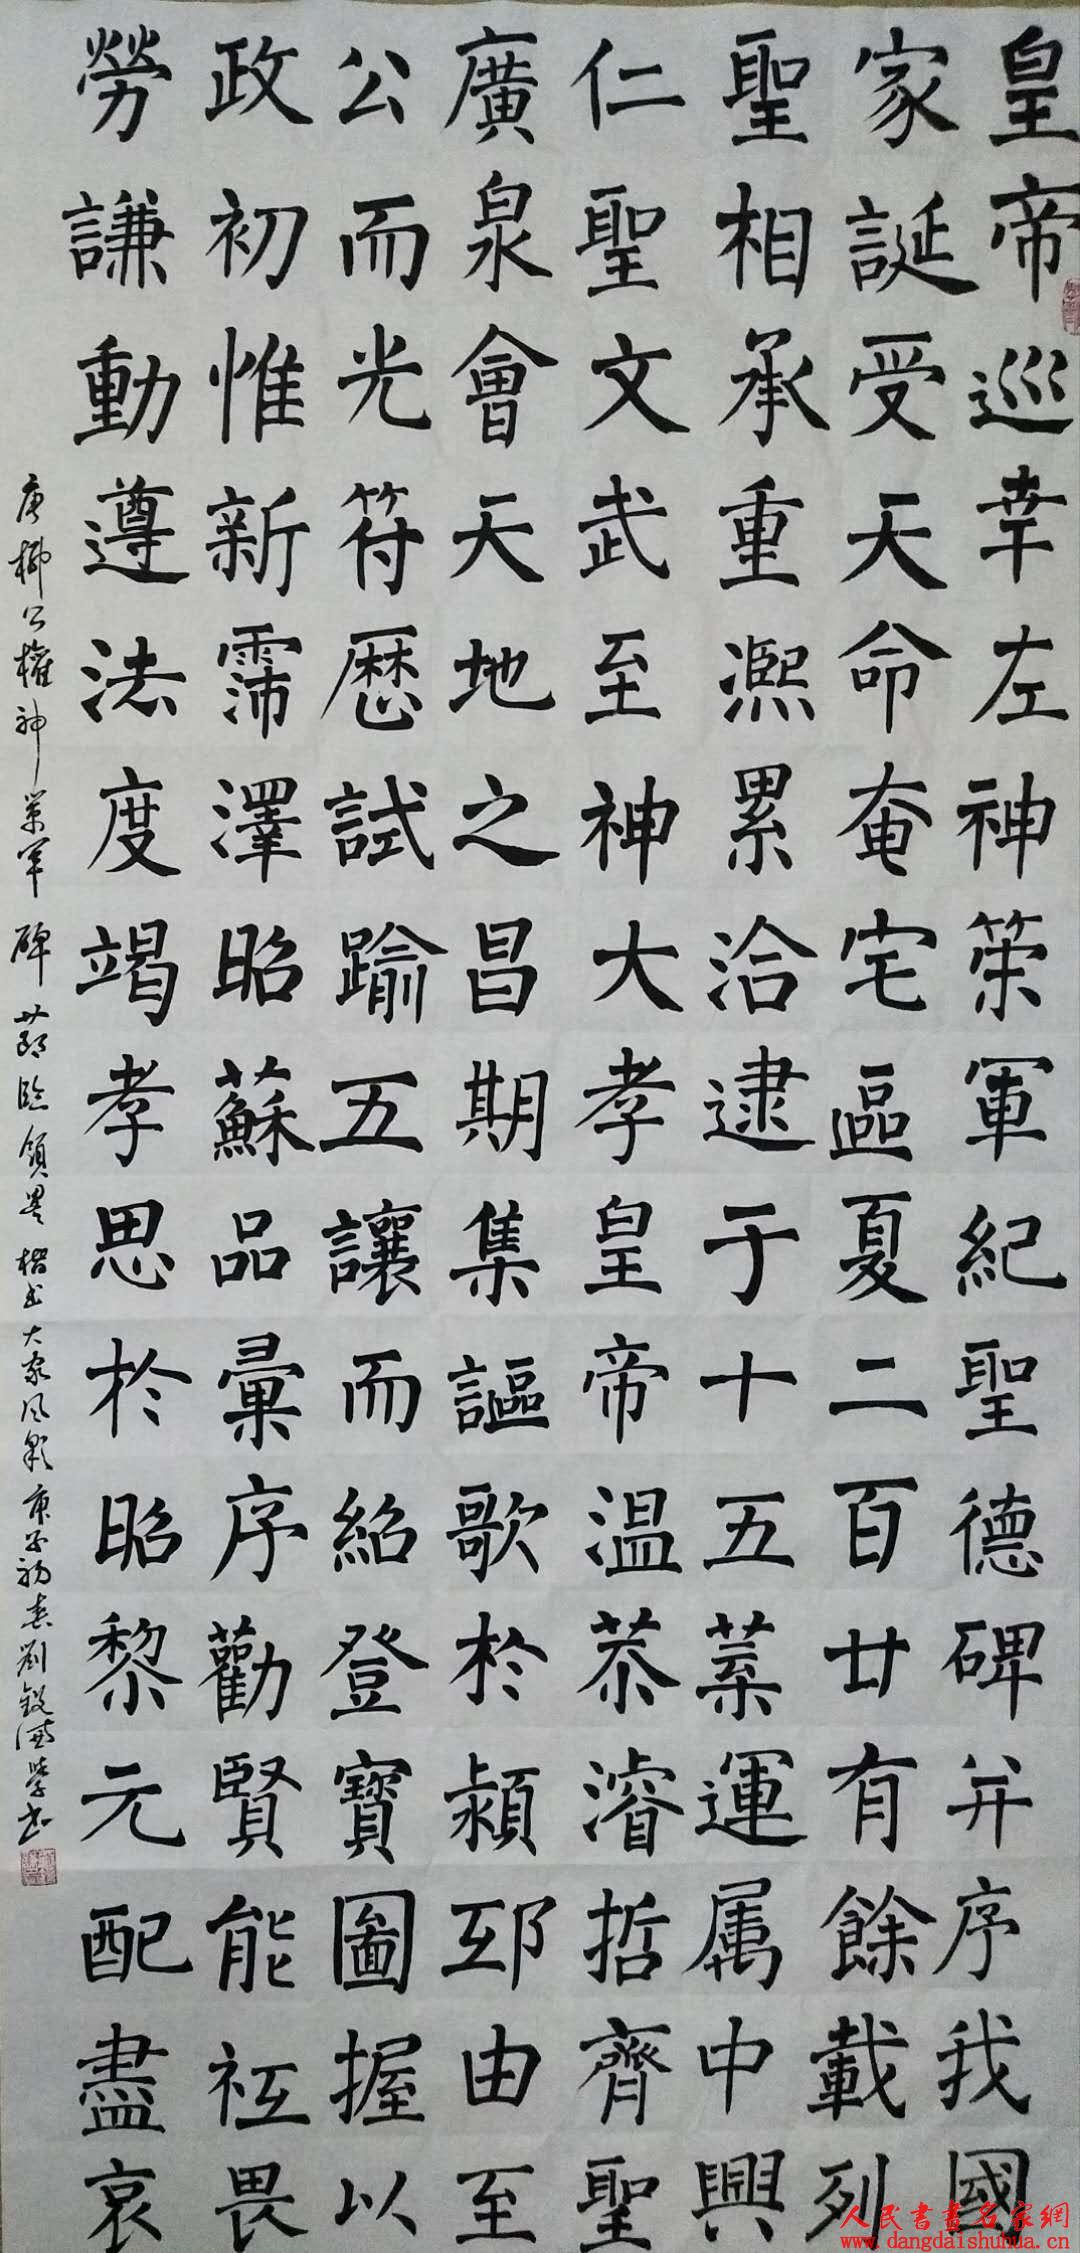 皇帝巡幸左神策軍紀聖德碑并序我國
家誕受天命奄宅區夏二百廿有餘載列
聖相承重熈累洽逮于十五葉運属中興
仁聖文武至神大孝皇帝温恭濬哲齊聖
廣泉會天地之昌期集謳歌於潁邸由至
公而光符歷試踰五讓而紹登寶圖握以
政初惟新霈澤昭蘇品彙序勸賢能祗畏
勞謙動遵法度竭孝思於昭黎元配盡哀
唐柳公權神策軍碑 節臨領畧楷書大家風彩庚子初春劉
人民書畫名家網
www.dangdaishuhua.cn